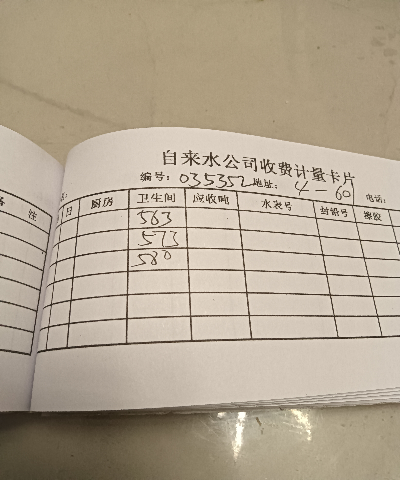 自来水公司收费计量卡片
编号: 035352 地址: 4-60 电话:
注
日 厨房 卫生间 应收吨 水表号 封铅号
563
573
580